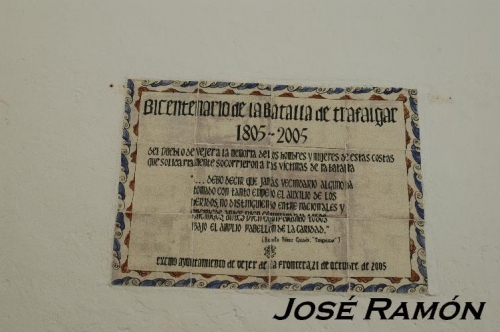 Bicentenario de la Batalla de Trafalgar
1805-2005
del pueblo de vejer a la memoria de los hombres y mujeres de estas costas
que solidariamente socorrieron a las víctimas de la batalla
"... DEBO DECIR QUE JAMÁS VECINDARIO ALGUNO HA
TOMADO CON TANTO EMPEÑO EL AUXILIO DE LOS
HERIDOS, NO DISTINGUIENDO ENTRE NACIONALES Y
ENEMIGOS, ANTES BIEN EQUIPARANDO TODOS
BAJO EL AMPLIO PABELLÓN DE LA CARIDAD."
(Benito Pérez Galdós, "Trafalgar")
EXCMO AYUNTAMIENTO DE VEJER DE LA FRONTERA, 21 DE OCTUBRE DE 2005
JOSÉ RAMÓN